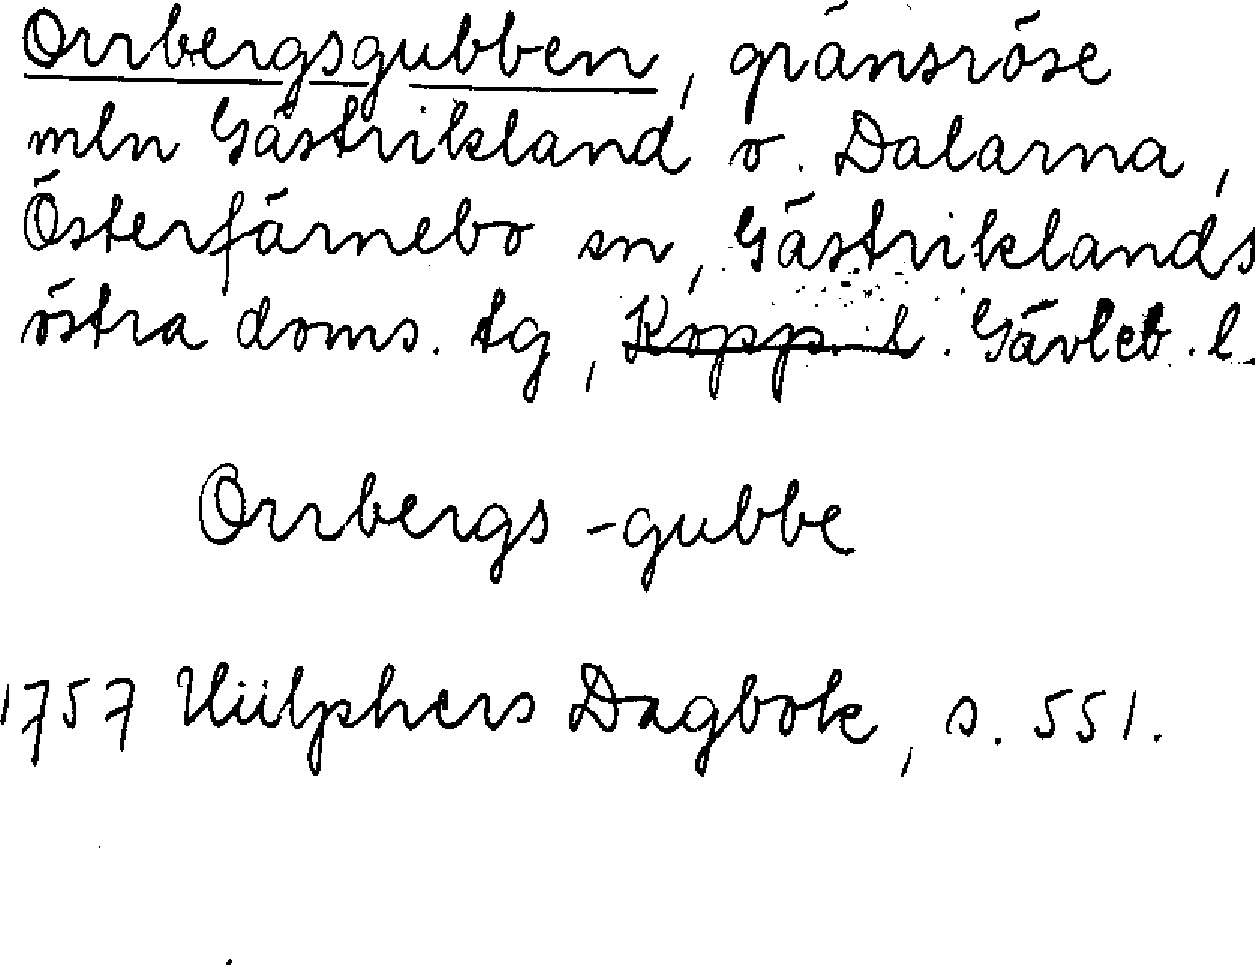 Orrbergsgubben, gränsröse
mln Gästrikland o. Dalarna,
Österfärnebo sn, Gästriklands
östra doms. tg, Kopp. l. Gävleb. l.
Orrbergs -gubbe
1757 Hülphers Dagbok, s. 551.